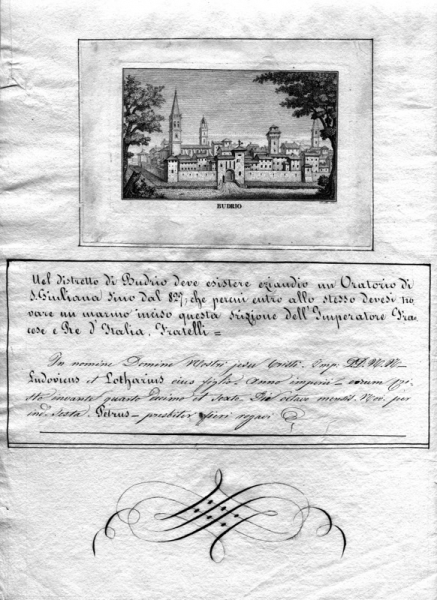 BUDRIO
Nel distretto di Budrio deve esistere eziandio un Oratorio di
S. Giuliana sino dal 827, che perciò entro allo stesso devesi tro
vare un marmo inciso questa iscrizione dell'Imperatore Fra
cese e Re d'Italia, Fratelli =
In nomine Domine Nostri Jesu Cristi. Imp. DD. N. N.
Ludovicus et Lotharius eius figlio. Anno imperii eorum
quarto decimo et Sexto. Die octavo menses Nov. per
ind. Sesta. Petrus presbiter fieri rogavi